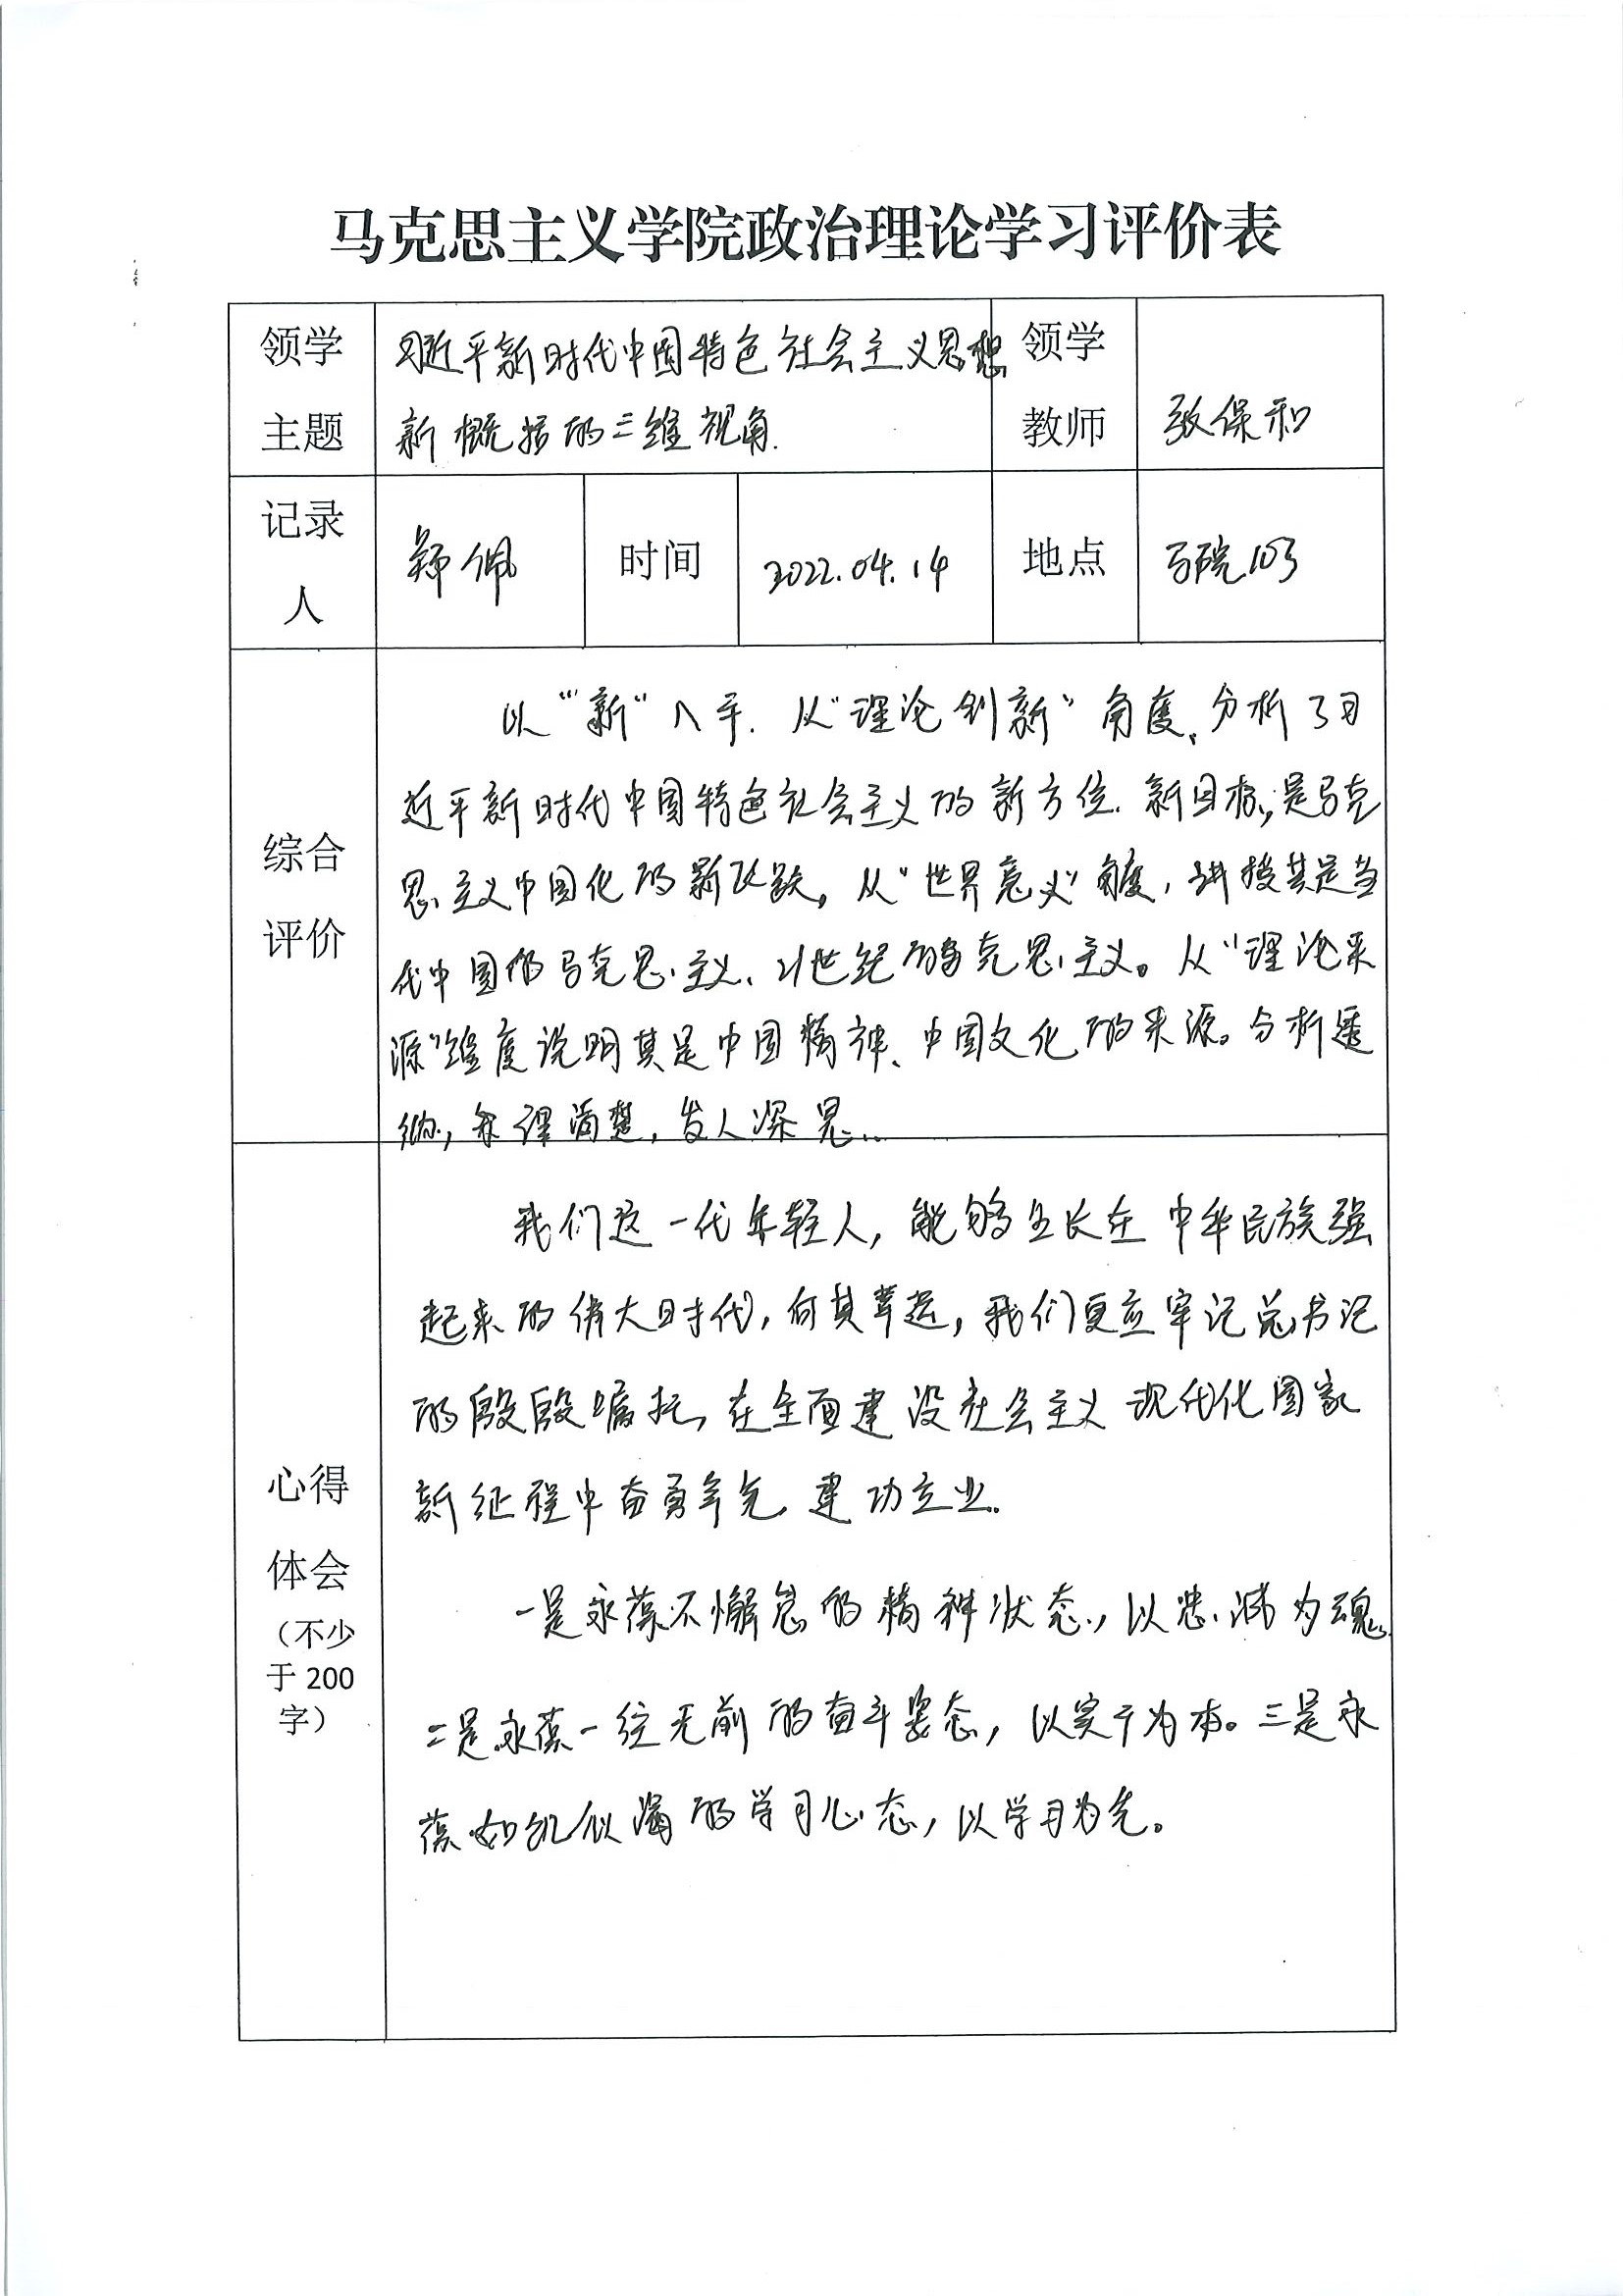 马克思主义学院政治理论学习评价表
领学
主题
习近平新时代中国特色社会主义思想
新概括的三维视角.
领学
教师
张保和
记录
人
郑佩
时间
2022.04.14
地点
马院103
综合
评价
以“新”入手.从“理论创新”角度、分析了习
近平新时代中国特色社会主义的新方位.新目标,是马克
思主义中国化的新飞跃,从“世界意义”角度,讲授其是当
代中国的马克思主义、21世纪的马克思主义。从“理论来
源”维度说明其是中国精神、中国文化的来源。分析透
彻,条理清楚,发人深思..
心得
体会
(不少
于200
字)
我们这一代年轻人,能够生长在中华民族强
起来的伟大时代,何其幸运,我们更应牢记总书记
的殷殷嘱托,在全面建设社会主义现代化国家
新征程中奋勇争先、建功立业.
一是永葆不懈怠的精神状态,以忠诚为魂.
二是永葆一往无前的奋斗姿态,以实干为本。三是永
葆如饥似渴的学习心态,以学习为先。